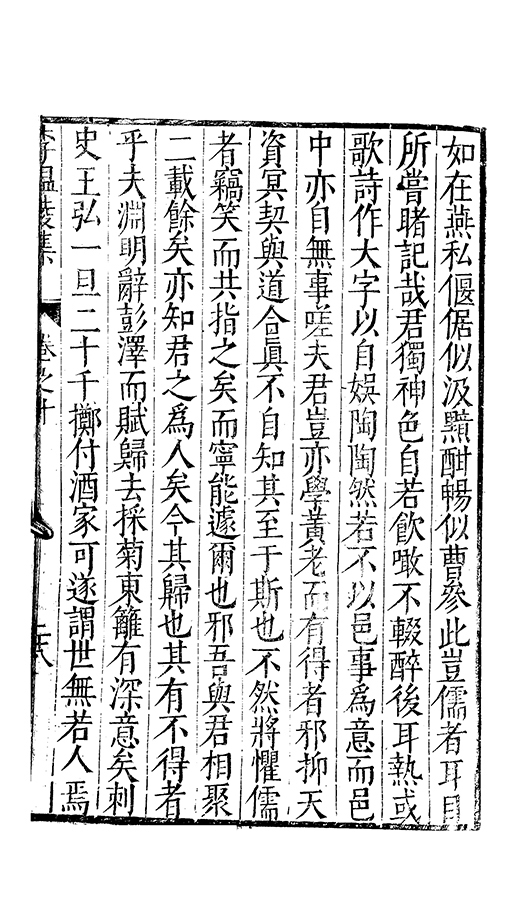 如在燕私偃倨似汲黯酣暢似曹參此豈儒者耳目
所嘗睹記哉君獨神色自若飲噉不輟醉後耳熱或
歌詩作大字以自娛陶陶然若不以邑事爲意而邑
中亦自無事嗟夫君豈亦學黃老而有得者邪抑天
資冥契與道合眞不自知其至于斯也不然將懼儒
者竊笑而共指之矣而寧能遽爾也邪吾與君相聚
二載餘矣亦知君之爲人矣今其歸也其有不得者
乎夫淵明辭彭澤而賦歸去採菊東籬有深意矣刺
史王弘一旦二十千擲付酒家可遂謂世無若人焉
李溫陵集 卷之十